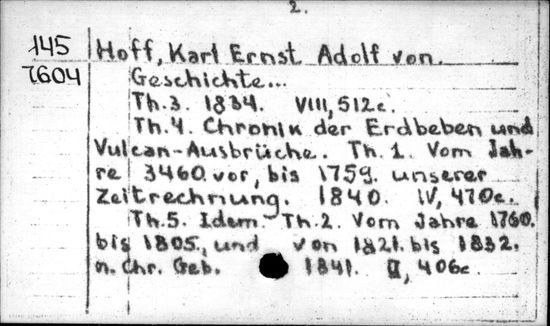 2.
145 Hoff, Karl Ernst Adolf von.
7604 Geschichte...
Th.3. 1834. VIII, 512c.
Th.4. Chronik der Erdbeben und
Vulcan-Ausbrüche. Th.1. Vom Jah-
re 3460 vor, bis 1759. unserer
Zeitrechnung. 1840. IV, 470c.
Th.5. Idem. Th.2. Vom Jahre 1760.
bis 1805., und von 1821. bis 1832.
n. Chr. Geb. 1841. II, 406c